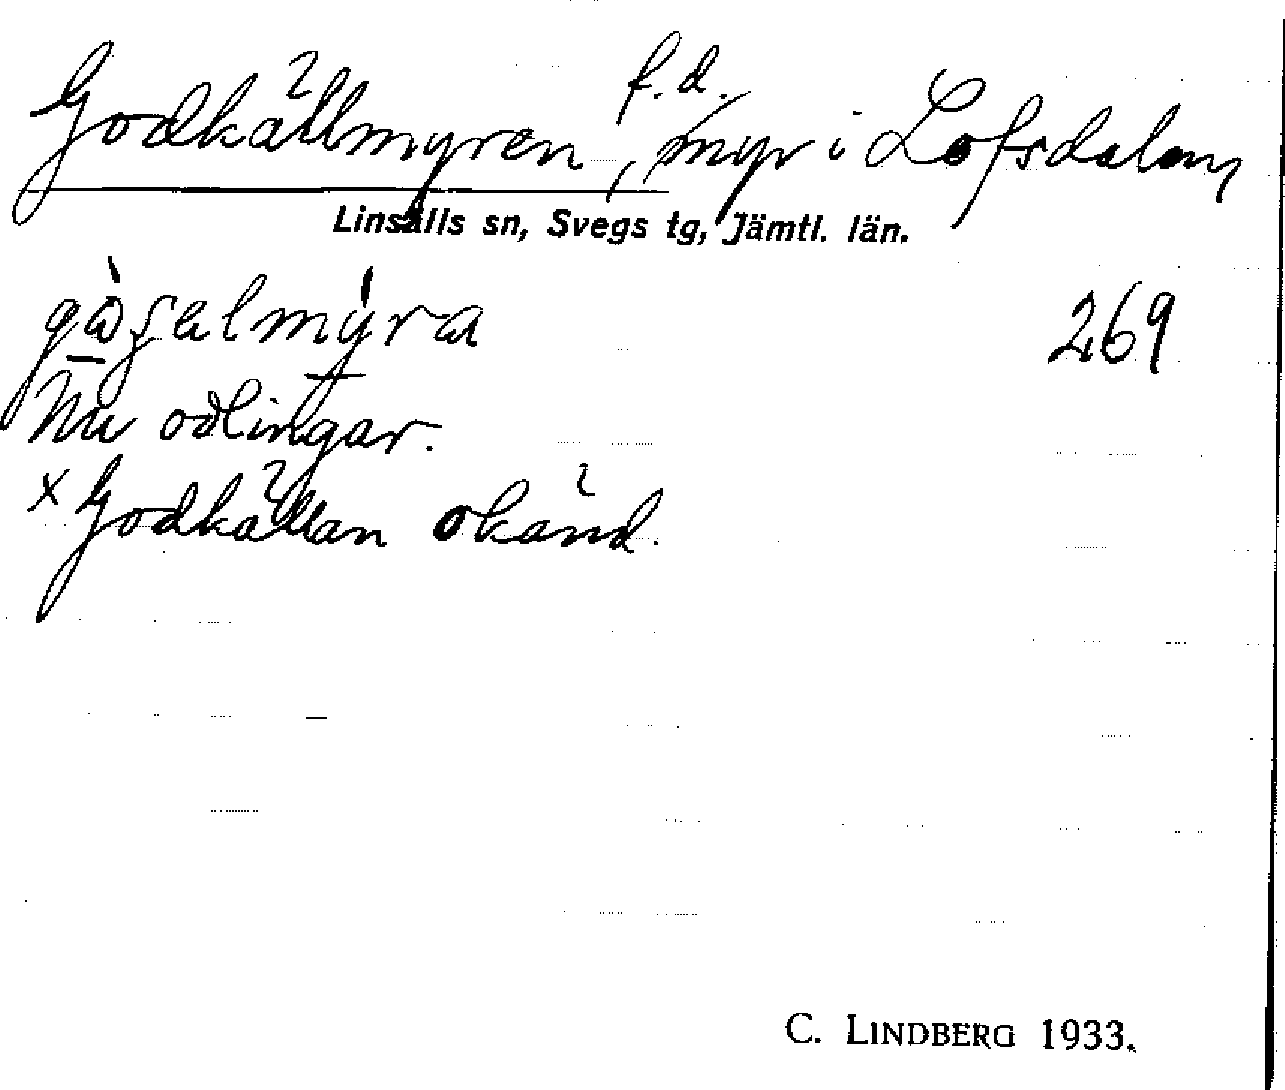 Godkällmyren, f.d. myr i Lofsdalen,
Linsälls sn, Svegs tg, Jämtl. län.
269
Nu odlingar.
x Godkällan okänd.
C. LINDBERG 1933.